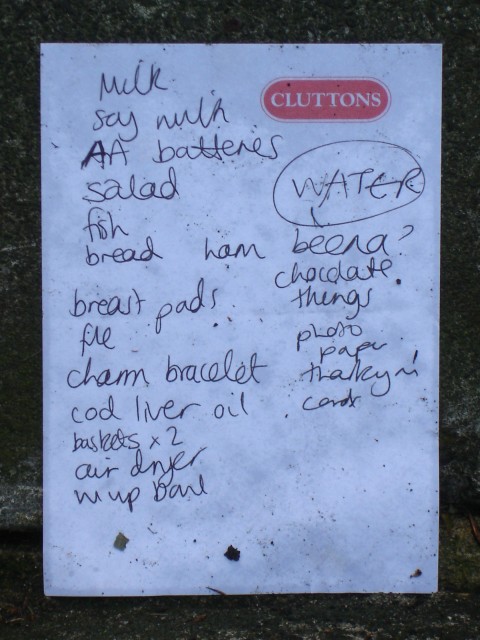 Milk
soy milk
AA batteries
salad
fish
bread ham
breast pads
file
charm bracelet
cod liver oil
baskets x 2
air dryer
CLUTTONS
WATER
beena?
chocolate
things
photo
paper
thankyou
cards